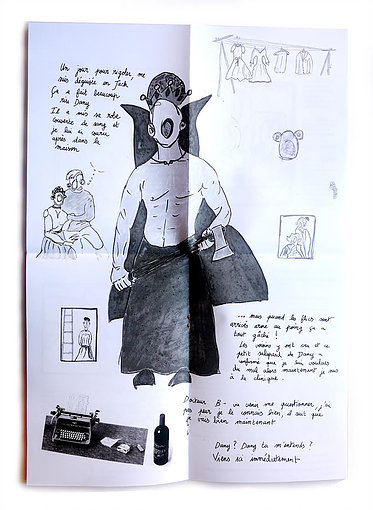 Un jour pour rigoler, me
suis déguisée en Jack
Ça a fait beaucoup
rire Dany
Il a mis sa robe
couverte de sang et
je lui ai couru
après dans la
maison
... mais quand les flics sont
arrivés arme au poing ça a
tout gâché !
Les voisins y ont cru et ce
petit salopard de Dany a
confirmé que je lui voulais
du mal alors maintenant je suis
à la clinique.
Docteur B- va venir me questionner, j'ai
pas peur je le connais bien, il sait que
je vais bien maintenant
Dany ? Dany tu m'entends ?
Viens ici immédiatement